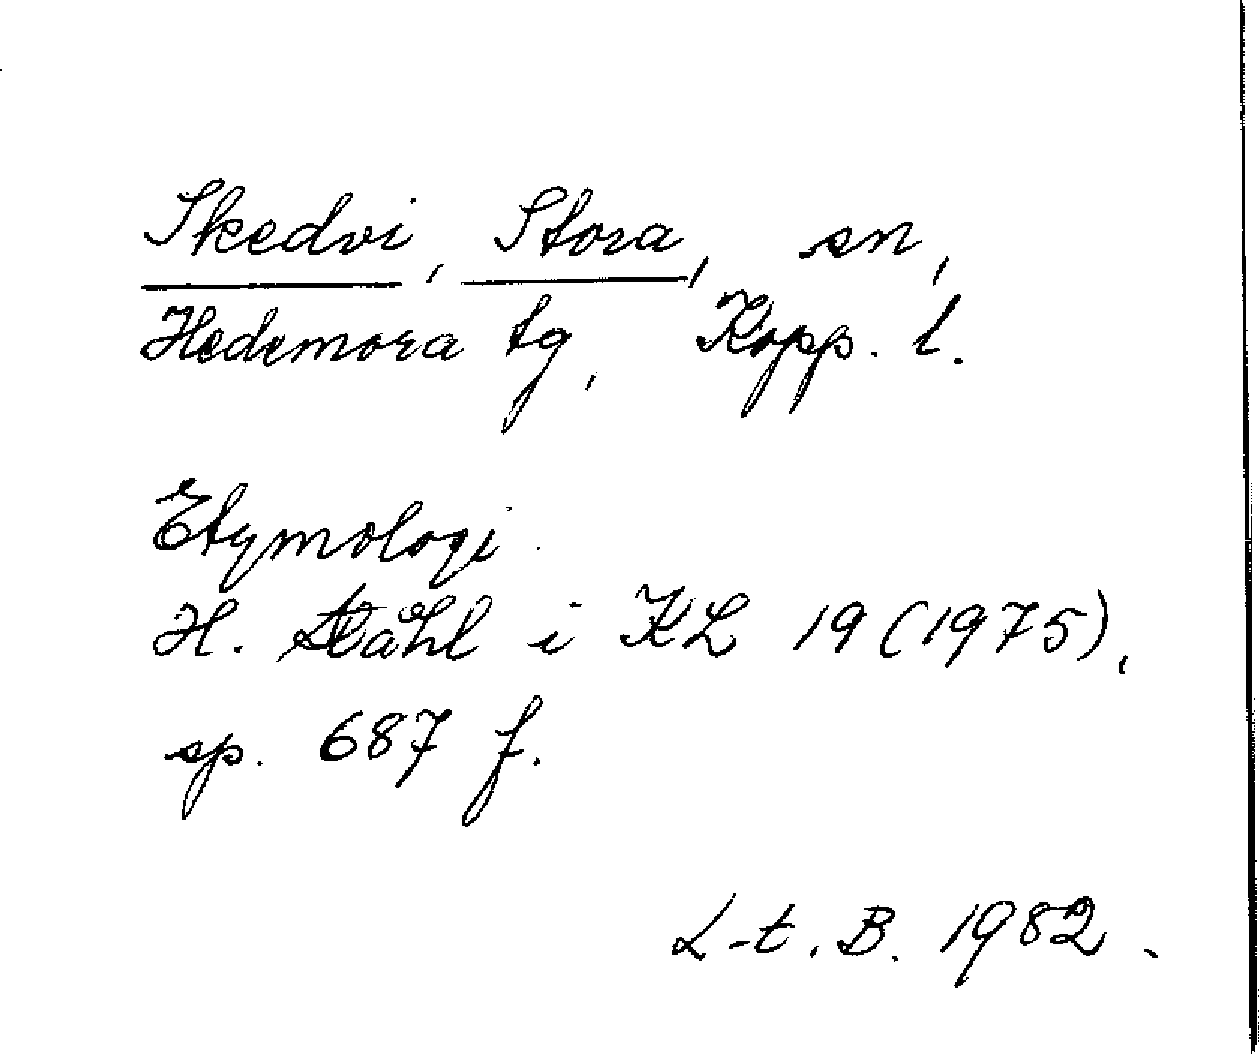 Skedvi, Stora, sn,
Hedemora tg, Kopp. l.
Etymologi.
H. Ståhl i KL 19 (1975),
sp. 687 f.
L-t. B. 1982.